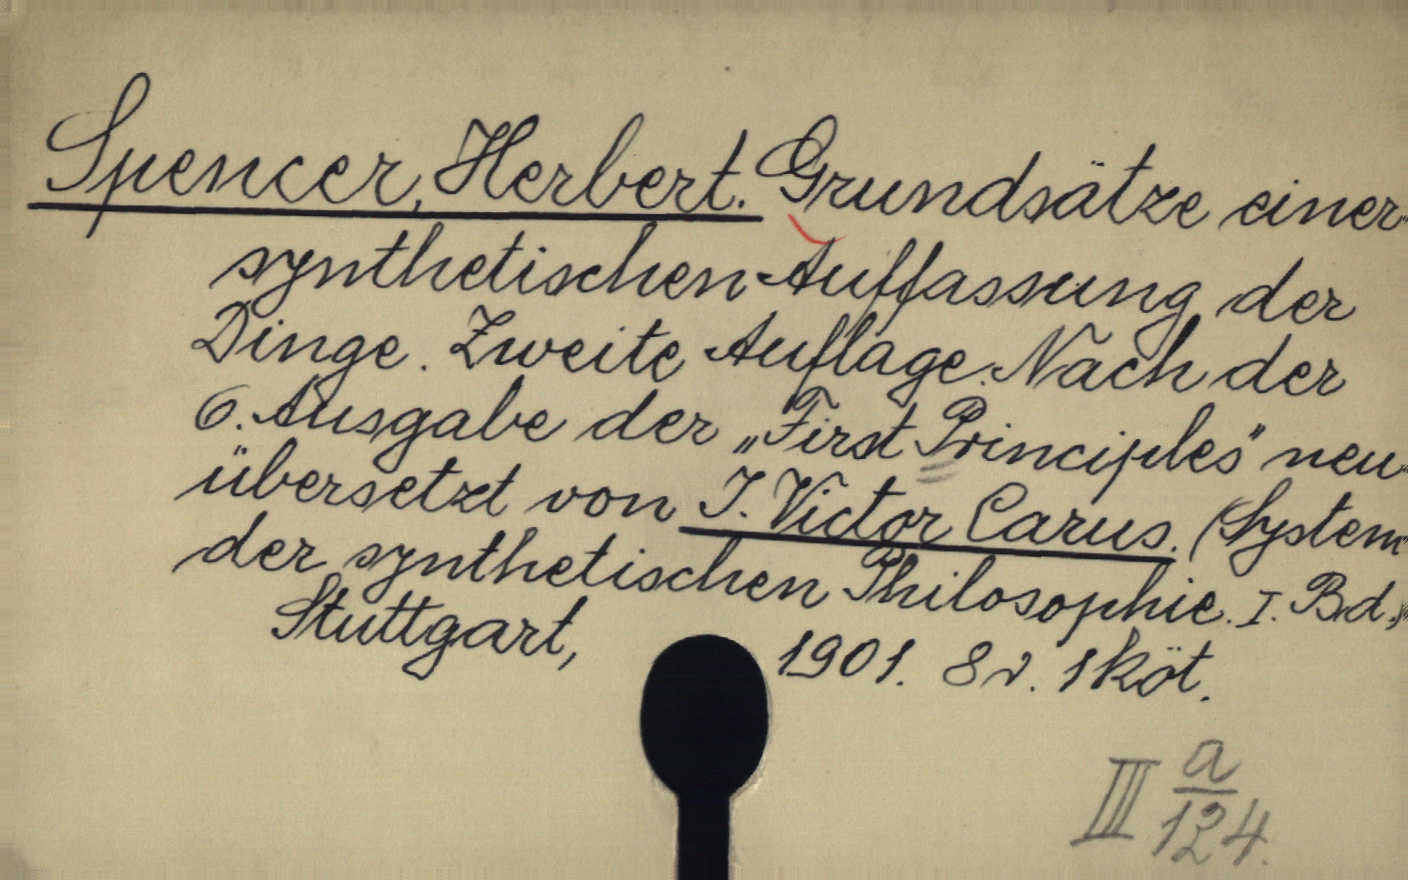 Spencer, Herbert. Grundsätze einer
synthetischen Auffassung der
Dinge. Zweite Auflage. Nach der
6. Ausgabe der „First Principles" neu
übersetzt von J. Victor Carus. (System
der synthetischen Philosophie. I. Bd.)
Stuttgart, 1901. 8v. 1 köt.
III a
124.